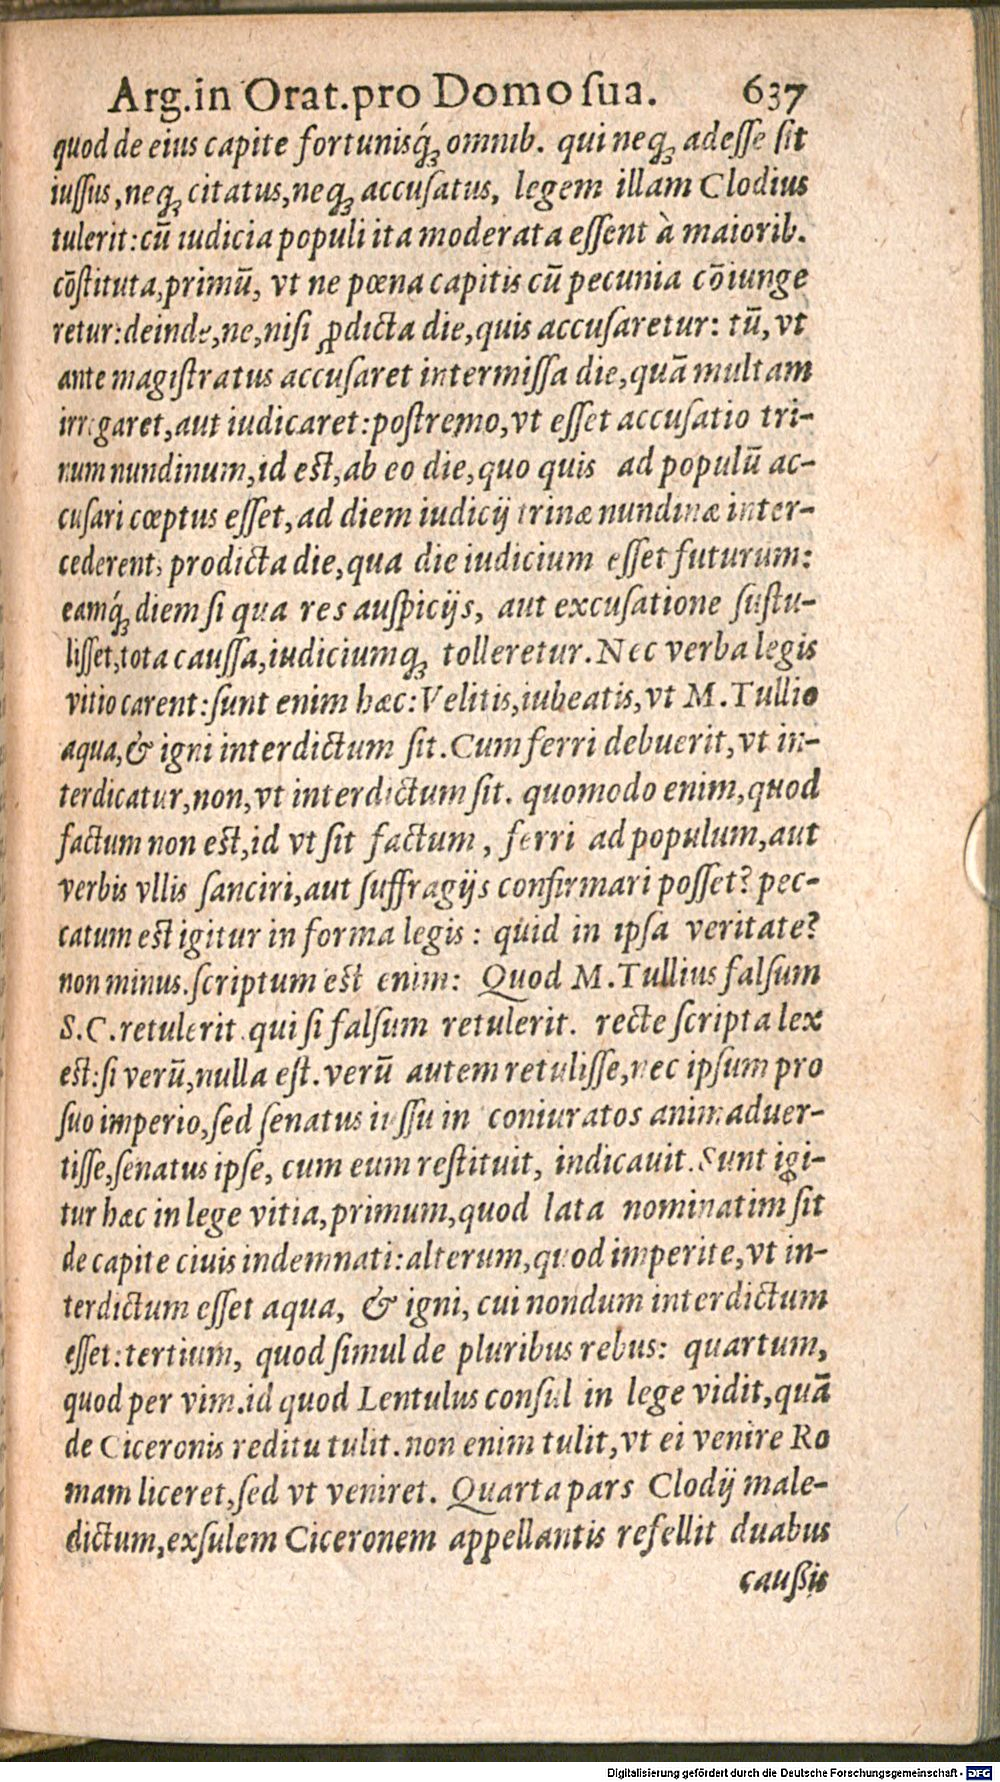 Arg.in Orat.pro Domo ſua. 637
quod de eius capite fortunisq́ꝫ omnib. qui neqꝫ adeſſe ſit
iuſſus, neqꝫ citatus, neqꝫ accuſatus, legem illam Clodius
tulerit: cū iudicia populi ita moderata eſſent à maiorib.
cōſtituta, primū, vt ne pœna capitis cū pecunia cōiunge
retur: deinde, ne, niſi ꝓdicta die, quis accuſaretur: tū, vt
ante magiſtratus accuſaret intermiſſa die, quā multam
irrogaret, aut iudicaret: poſtremo, vt eſſet accuſatio tri-
num nundinum, id eſt, ab eo die, quo quis ad populū ac-
cuſari cœptus eſſet, ad diem iudicij trinæ nundinæ inter-
cederent, prodicta die, qua die iudicium eſſet futurum:
eamq́ꝫ diem ſi qua res auſpicijs, aut excuſatione ſuſtu-
liſſet, tota cauſſa, iudiciumqꝫ tolleretur. Nec verba legis
vitio carent: ſunt enim hæc: Velitis, iubeatis, vt M. Tullio
aqua, & igni interdictum ſit. Cum ferri debuerit, vt in-
terdicatur, non, vt interdictum ſit. quomodo enim, quod
factum non eſt, id vt ſit factum, ferri ad populum, aut
verbis vllis ſanciri, aut ſuffragijs confirmari poſſet? pec-
catum eſt igitur in forma legis: quid in ipſa veritate?
non minus. ſcriptum eſt enim: Quod M. Tullius falſum
S.C. retulerit. qui ſi falſum retulerit. recte ſcripta lex
eſt: ſi verū, nulla eſt. verū autem retuliſſe, nec ipſum pro
ſuo imperio, ſed ſenatus iuſſu in coniuratos animaduer-
tiſſe, ſenatus ipſe, cum eum reſtituit, indicauit. Sunt igi-
tur hæc in lege vitia, primum, quod lata nominatim ſit
de capite ciuis indemnati: alterum, quod imperite, vt in-
terdictum eſſet aqua, & igni, cui nondum interdictum
eſſet: tertium, quod ſimul de pluribus rebus: quartum,
quod per vim. id quod Lentulus conſul in lege vidit, quā
de Ciceronis reditu tulit. non enim tulit, vt ei venire Ro
mam liceret, ſed vt veniret. Quarta pars Clodij male-
dictum, exſulem Ciceronem appellantis refellit duabus
caußis
Digitalisierung gefördert durch die Deutsche Forschungsgemeinschaft - DFG